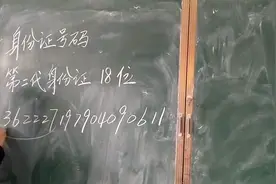 身份证号码
第二代身份证 18位
362227197904090611